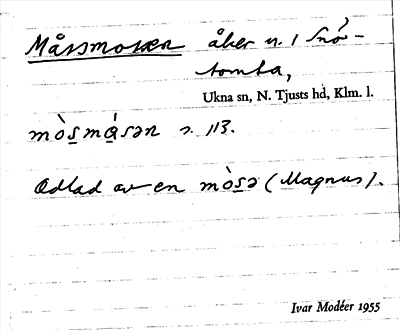 Måssmossen åker n. 1 Snö-
tomta,
Ukna sn, N. Tjusts hd, Klm. l.
mòs̲má̲sən s. 113.
Odlad av en mòs̲ə (Magnus).
Ivar Modéer 1955